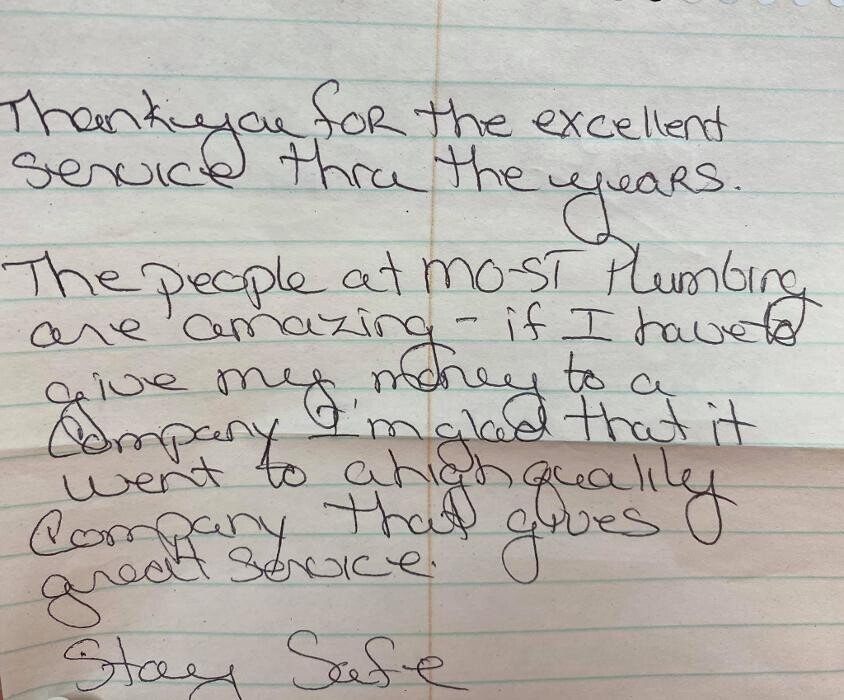 Thank you for the excellent
service thru the years.
The people at MOST Plumbing
are amazing - if I have to
give my money to a
Company I'm glad that it
went to a high quality
Company that gives
great service.
Stay Safe